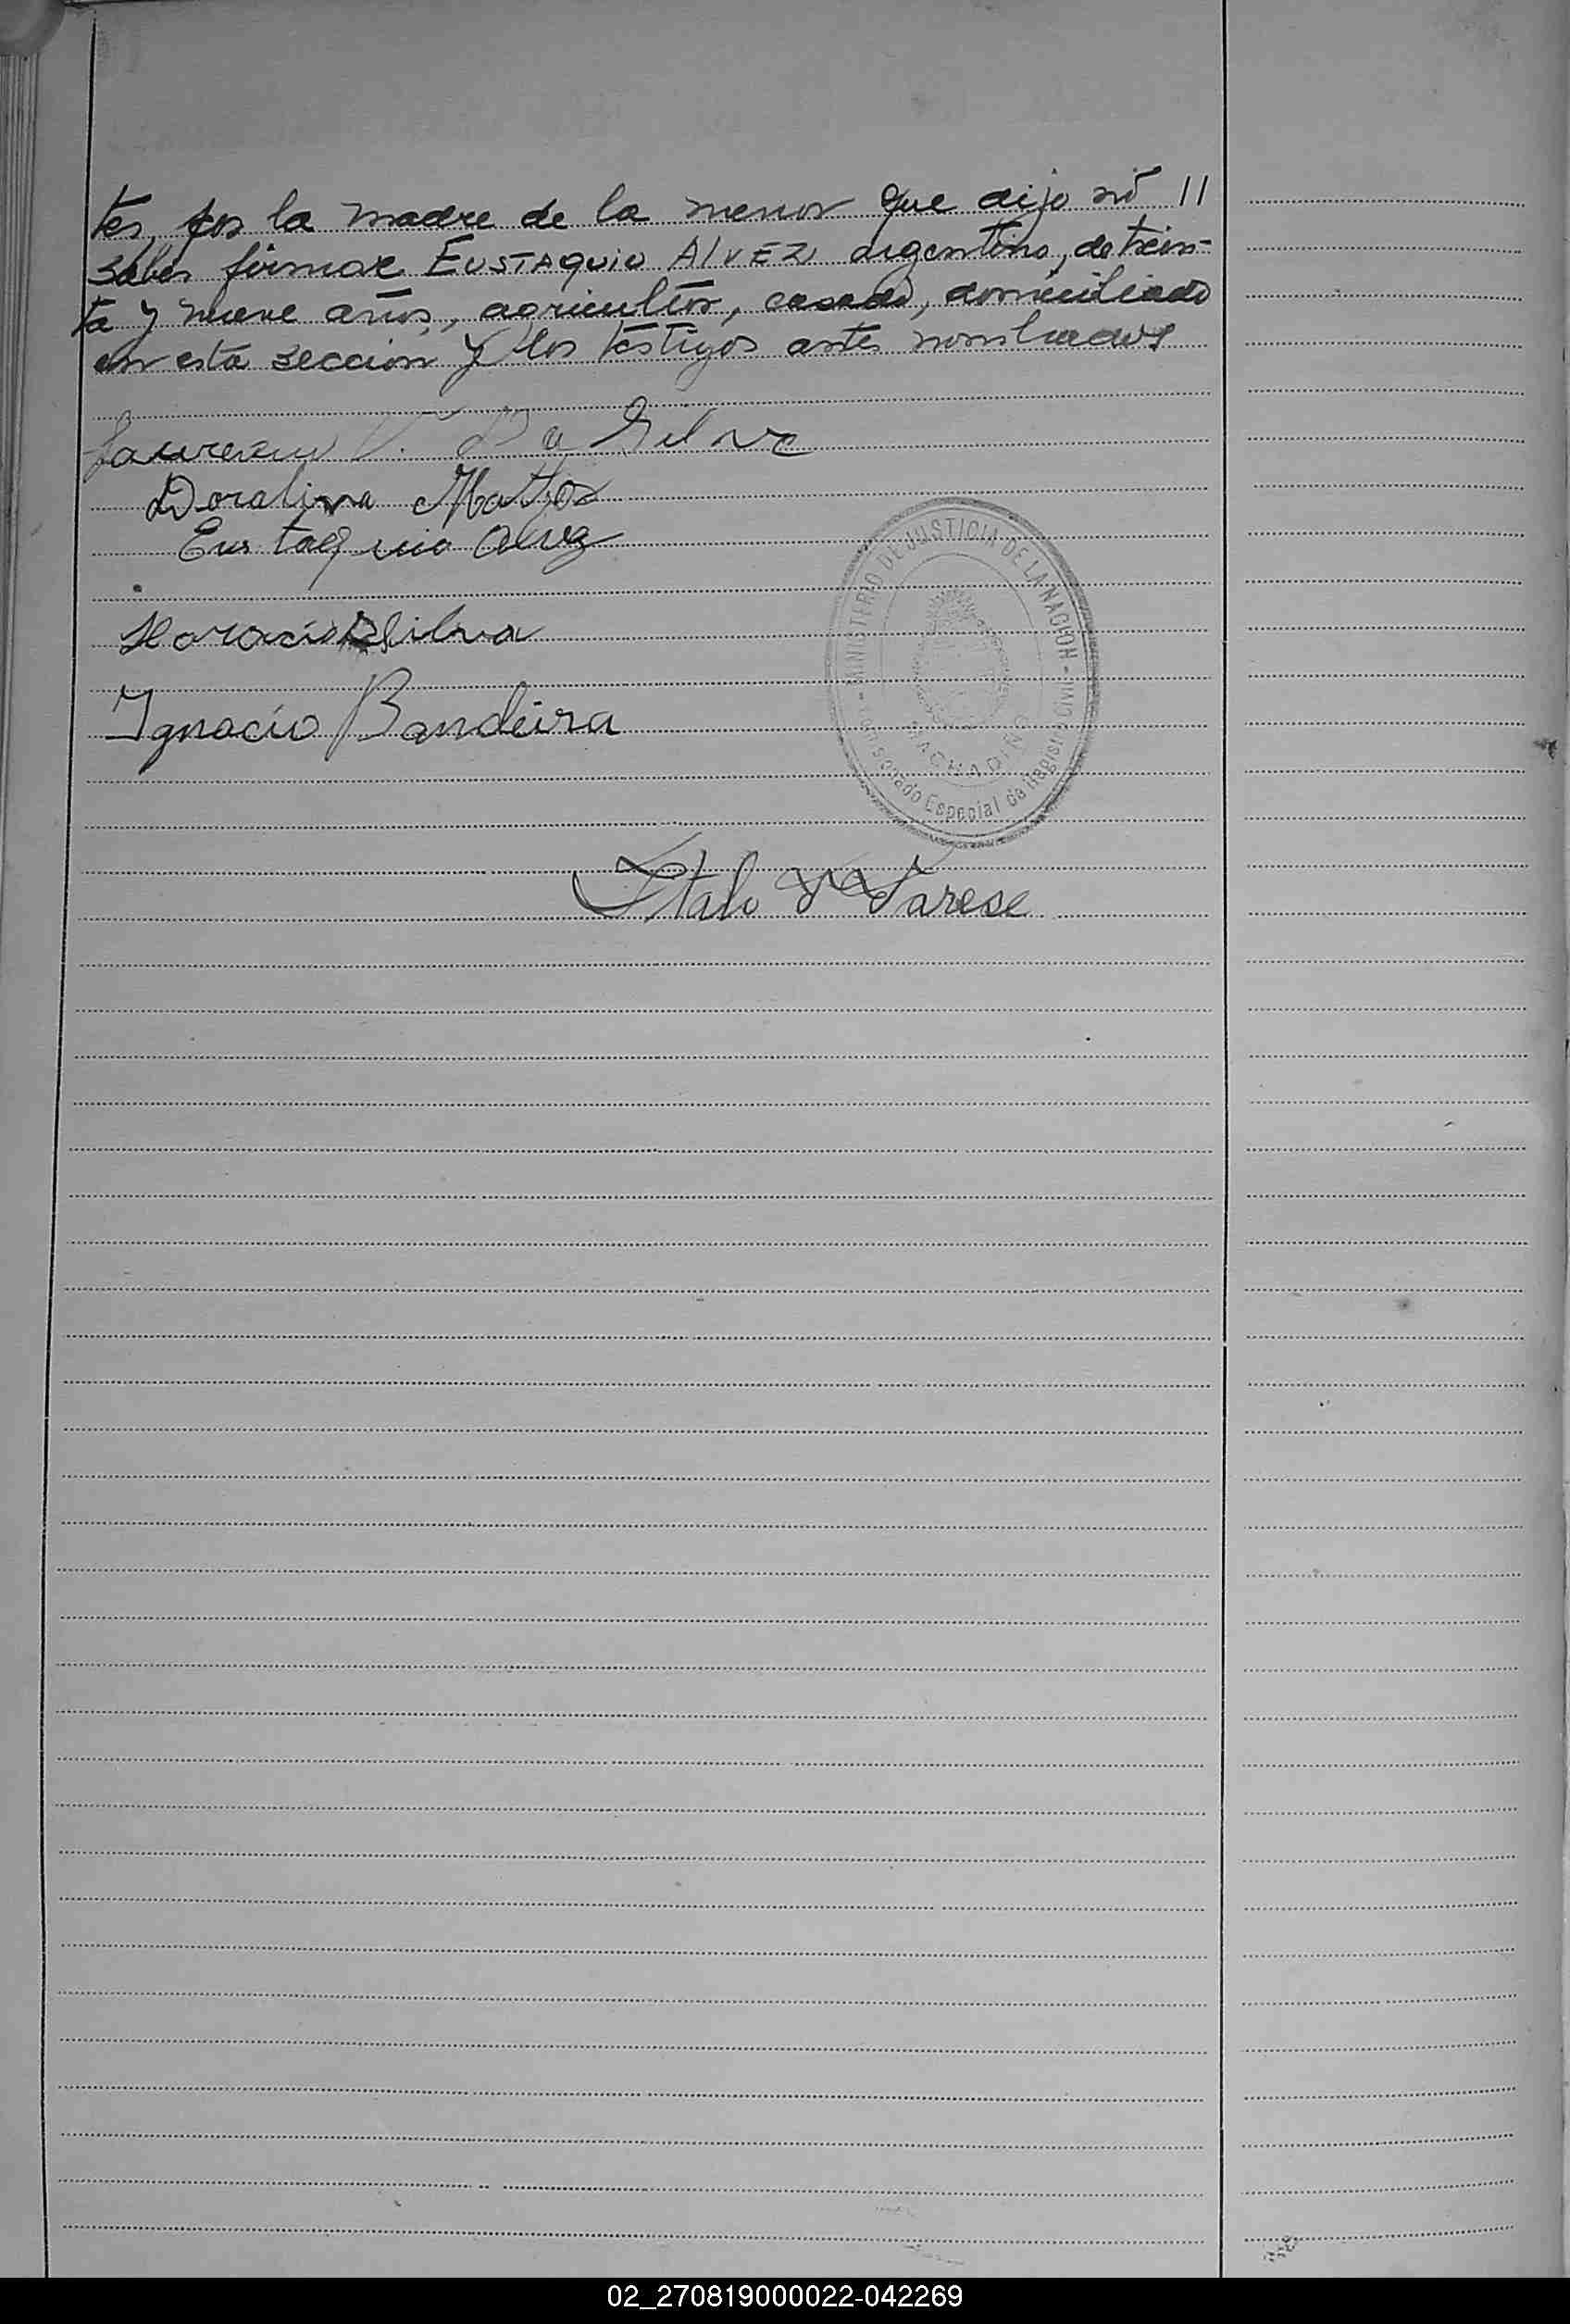 tes, por la madre de la menor que dijo nó //
saber firmar EUSTAQUIO ALVEZ, argentino, de trein=
ta y nueve años, agricultor, casado, domiciliado
en esta sección y los testigos antes nombrados
Laureano V. Da Silva
Doralina Mattos
Eustaquio Alvez
Horacio D Silva
Ignacio Bandeira
MINISTERIO DE JUSTICIA DE LA NACION -
MACHADINO
Comisionado Especial de Registro Civil -
Italo Varese
02_270819000022-042269